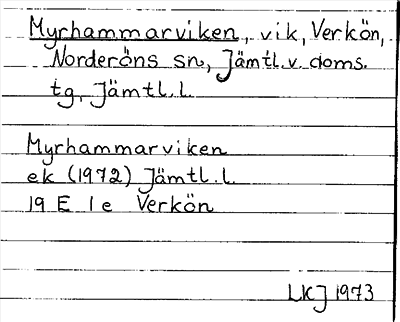 Myrhammarviken, vik, Verkön,
Norderöns sn, Jämtl.v. doms.
tg, Jämtl.l.
Myrhammarviken
ek (1972) Jämtl.l.
19 E 1e Verkön
LKJ 1973